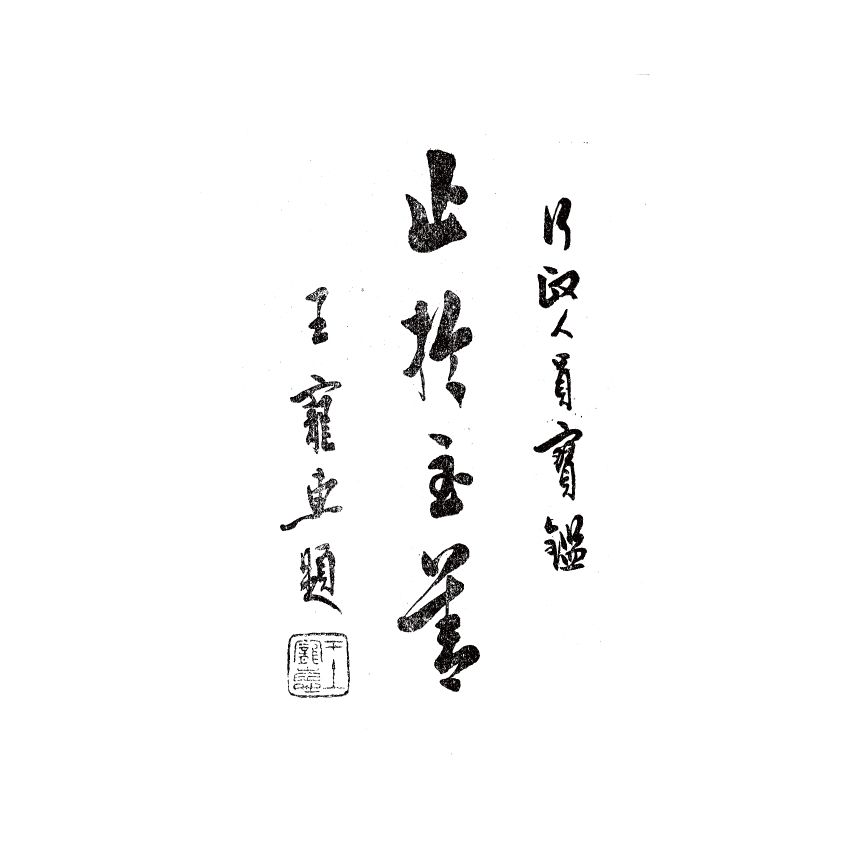 行政人員寶鑑
止於至善
王寵惠題
王寵惠